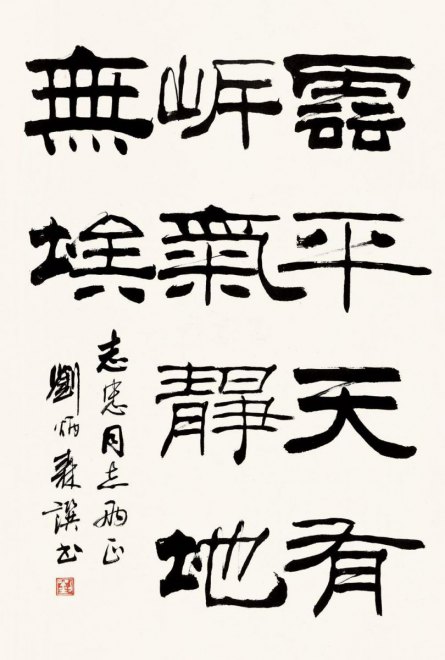 雲平天有
岸氣靜地
無埃
志忠同志兩正
劉炳森譔書